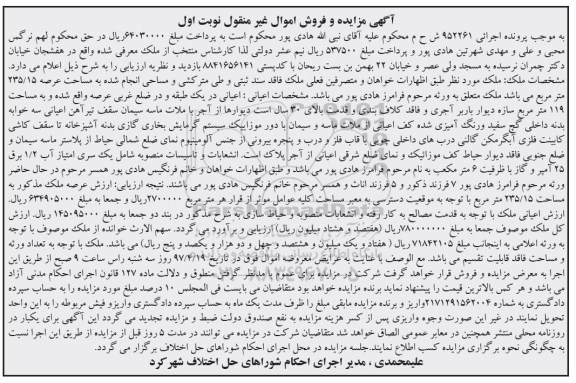 آگهی مزایده و فروش اموال غیر منقول نوبت اول
به موجب پرونده اجرائی ۹۵۲۲۶۱ ش ح م محکوم علیه آقای نبی الله هادی پور محکوم است به پرداخت مبلغ ۶۴۰۳۰۰۰۰ریال در حق محکوم لهم نرگس
محبی و علی و مهدی شهرتین هادی پور و پرداخت مبلغ ۵۳۷۵۰۰ ریال نیم عشر دولتی لذا کارشناس منتخب از ملک معرفی شده واقع در هفشجان خیابان
دکتر چمران نرسیده به مسجد ولی عصر و خیابان ۲۲ بهمن بن بست ریحان با کدپستی ۸۸۴۱۶۵۶۱۴۱ بازدید و نظریه ارزیابی را به شرح ذیل اعلام می دارد.
مشخصات ملک: ملک مورد نظر طبق اظهارات خواهان و متصرفین فعلی ملک فاقد سند ثبتی و طی مترکشی و مساحی انجام شده به مساحت عرصه ۲۳۵/۱۵
متر مربع می باشد ملک متعلق به ورثه مرحوم فرامرز هادی پور می باشد. مشخصات اعیانی : اعیانی در یک طبقه و در ضلع غربی عرصه واقع شده و به مساحت
۱۱۹ متر مربع سازه دیوار باربر آجری و فاقد کلاف بندی و قدمت بالای ۳۰ سال است دیوارها از آجر با ملات ماسه سیمان سقف تیرآهن اعیانی سه خوابه
بدنه داخلی گچ سفید ورنگ آمیزی شده کف اعیانی از ملات ماسه و سیمان با دور موزاییک سیستم گرمایش بخاری گازی بدنه آشپزخانه تا سقف کاشی
کابینت فلزی آبگرمکن گالنی درب های داخلی چوبی با قاب فلز و درب و پنجره بیرونی از جنس آلومینیوم نمای ضلع شمالی حیاط از پلاستر ماسه سیمان و
ضلع جنوبی فاقد دیوار حیاط کف موزائیک و نمای ضلع شرقی اعیانی از آجر پلاک است. انشعابات و تاسیسات منصوبه شامل یک سری امتیاز آب ۱/۲ برق
۲۵ آمپر و گاز با ظرفیت ۶ متر مکعب به نام مرحوم فرامرز هادی پور می باشد و طبق اظهارات خواهان و خانم فرنگیس هادی پور همسر مرحوم در حال حاضر
ورثه مرحوم فرامرز هادی پور ۷ فرزند ذکور و ۵ فرزند اناث و همسر مرحوم خانم فرنگیس هادی پور می باشند. نتیجه ارزیابی: ارزش عرصه ملک مذکور به
مساحت ۲۳۵/۱۵ متر مربع با توجه به موقعیت دسترسی به معبر مساحت کلیه عوامل موثر از قرار هر متر مربع ۲۷۰۰۰۰۰ریال و جمعا به مبلغ ۶۳۴۹۰۵۰۰۰ریال.
ارزش اعیانی ملک با توجه به قدمت مصالح به کاررفته و انشعابات منصوبه و حیاط سازی به شرح مذکور در بند دو جمعا به مبلغ ۱۴۵۰۹۵۰۰۰ ریال. ارزش
کل ملک موصوف جمعا به مبلغ ۷۸۰۰۰۰۰۰۰ریال (هفتصد و هشتاد میلیون ریال) ارزیابی و برآورد می گردد. سهم الارث خوانده از ملک موصوف با توجه
به ورثه اعلامی به اینجانب مبلغ ۷۱۸۴۲۱۰۵ ریال ( هفتاد و یک میلیون و هشتصد و چهل و دو هزار و یکصد و پنج ریال) می باشد. ملک با توجه به تعداد ورثه
و مساحت فاقد قابلیت تقسیم می باشد. مع الوصف با عنایت به مراتب معروضه اموال فوق در تاریخ ۹۷/۴/۱۹ روز سه شنبه راس ساعت ۹ صبح از طریق این
اجرا به معرض مزایده و فروش قرار خواهد گرفت شرکت در مزایده برای همه با مدنظر گرفتن منطوق و دلالت ماده ۱۲۷ قانون اجرای احکام مدنی آزاد
می باشد و هر کس بالاترین قیمت را پیشنهاد نماید برنده مزایده خواهد بود متقاضیان می بایست فی المجلس ۱۰ درصد مبلغ مورد مزایده را به حساب سپرده
دادگستری به شماره ۲۱۷۱۲۹۱۵۶۲۰۰۴واریز و برنده مزایده مابقی مبلغ را ظرف مدت یک ماه به حساب سپرده دادگستری واریزو فیش مربوطه را به این واحد
تحویل نمایند در غیر این صورت وجوه واریزی پس از کسر هزینه مزایده به نفع صندوق دولت ضبط و مزایده تجدید می گردد این آگهی برای یکبار در
روزنامه محلی منتشر همچنین در معابر عمومی الصاق خواهد شد متقاضیان شرکت در مزایده می توانند در مدت ۵ روز قبل از مزایده از طریق این اجرا نسبت
به چگونگی نحوه برگزاری مزایده کسب اطلاع نمایند.جلسه مزایده در محل اجرای احکام شوراهای حل اختلاف برگزار می گردد.
علیمحمدی ، مدیر اجرای احکام شوراهای حل اختلاف شهرکرد